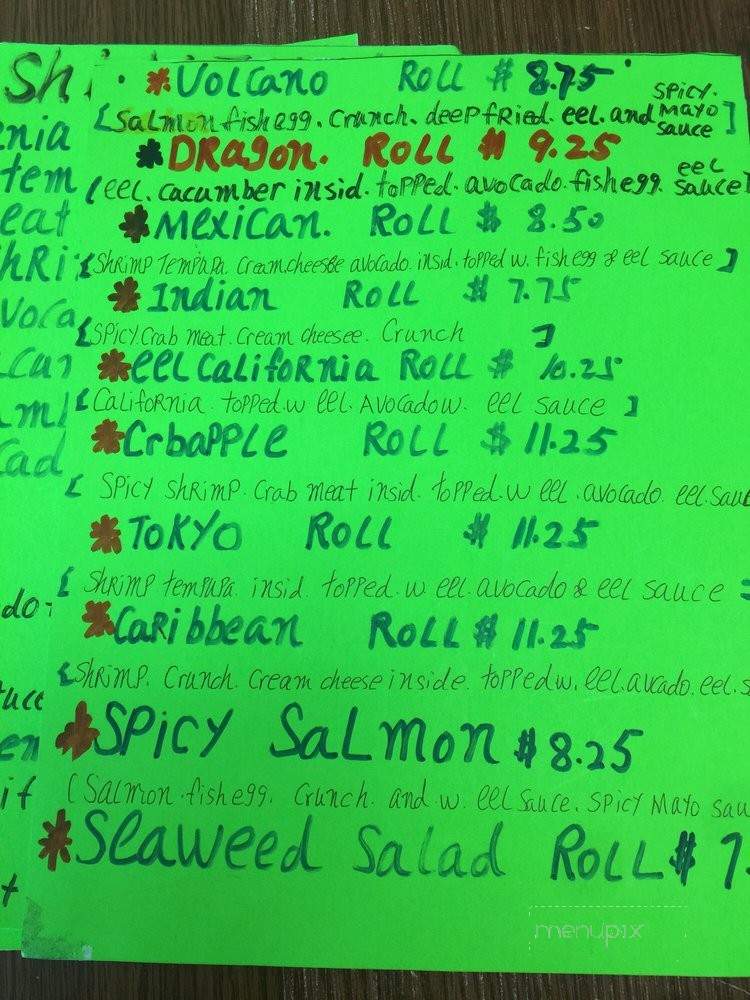 Sh
enia
tem
eat
hRi
Voca
cad
do
uce
en
it
t
*Volcano Roll $ 8.75
[Salmon fishegg. Crunch. deepfried. eel. and spicy. Mayo sauce]
*DRagon. Roll $ 9.25
(eel. cacumber insid. topped. avocado. fishegg. eel sauce
*Mexican. Roll $ 8.50
[Shrimp Tempupa. Cream.cheesbe avocado. insid. topped w. fishegg & eel sauce]
*Indian Roll $ 7.75
[Spicy.Crab meat. Cream cheesee. Crunch ]
*eel California Roll $ 10.25
[California. topped.w eel. Avocadow. eel sauce]
*Crbapple Roll $ 11.25
[ Spicy shrimp. Crab meat insid. topped.w eel. avocado. eel.sau
*Tokyo Roll $ 11.25
[ Shrimp tempupa. insid topped. w eel. avocado & eel sauce ]
*Caribbean Roll $ 11.25
[Shrimp. Crunch. Cream cheese inside. topped w. eel.avcado. eel. s
*Spicy Salmon $ 8.25
(Salmon.fishegg. Crunch. and w. eel sauce. spicy Mayo sau
*Seaweed Salad Roll $ 7.
menupix